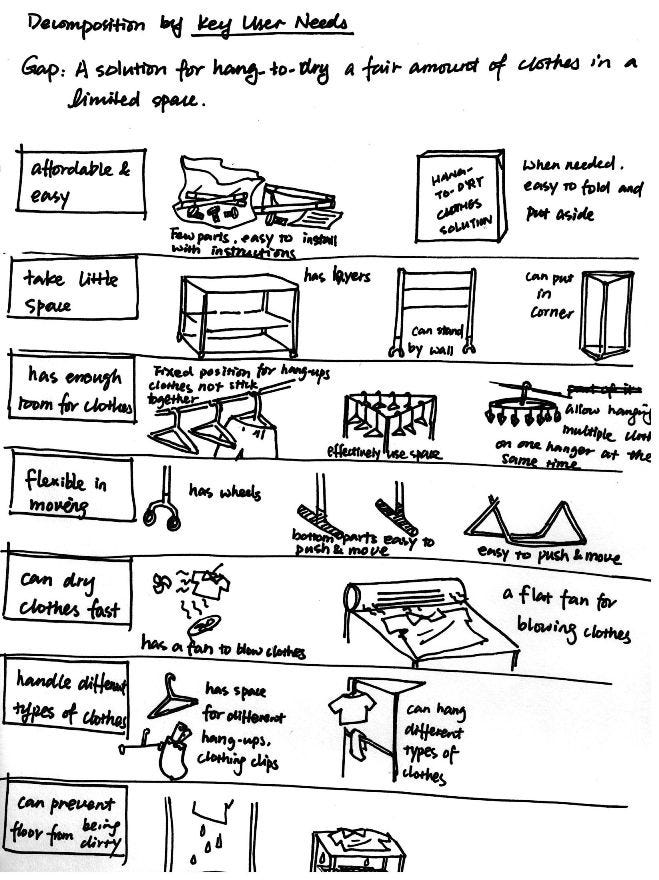 Decomposition by Key User Needs
Gap: A solution for hang-to-dry a fair amount of clothes in a
limited space.
affordable &
easy
Few parts, easy to install
with instructions
HANG-
TO-DRY
CLOTHES
SOLUTION
When needed,
easy to fold and
put aside
take little
space
has layers
can stand
by wall
can put
in
corner
has enough
room for clothes
Fixed position for hang-ups
clothes not stick
together
effectively use space
allow hanging
multiple
on one hanger at the
same time
flexible in
moving
has wheels
bottom parts easy to
push & move
easy to push & move
can dry
clothes fast
has a fan to blow clothes
a flat fan for
blowing clothes
handle different
types of clothes
has space
for different
hang-ups,
clothing clips
can hang
different
types of
clothes
can prevent
floor from being
dirty